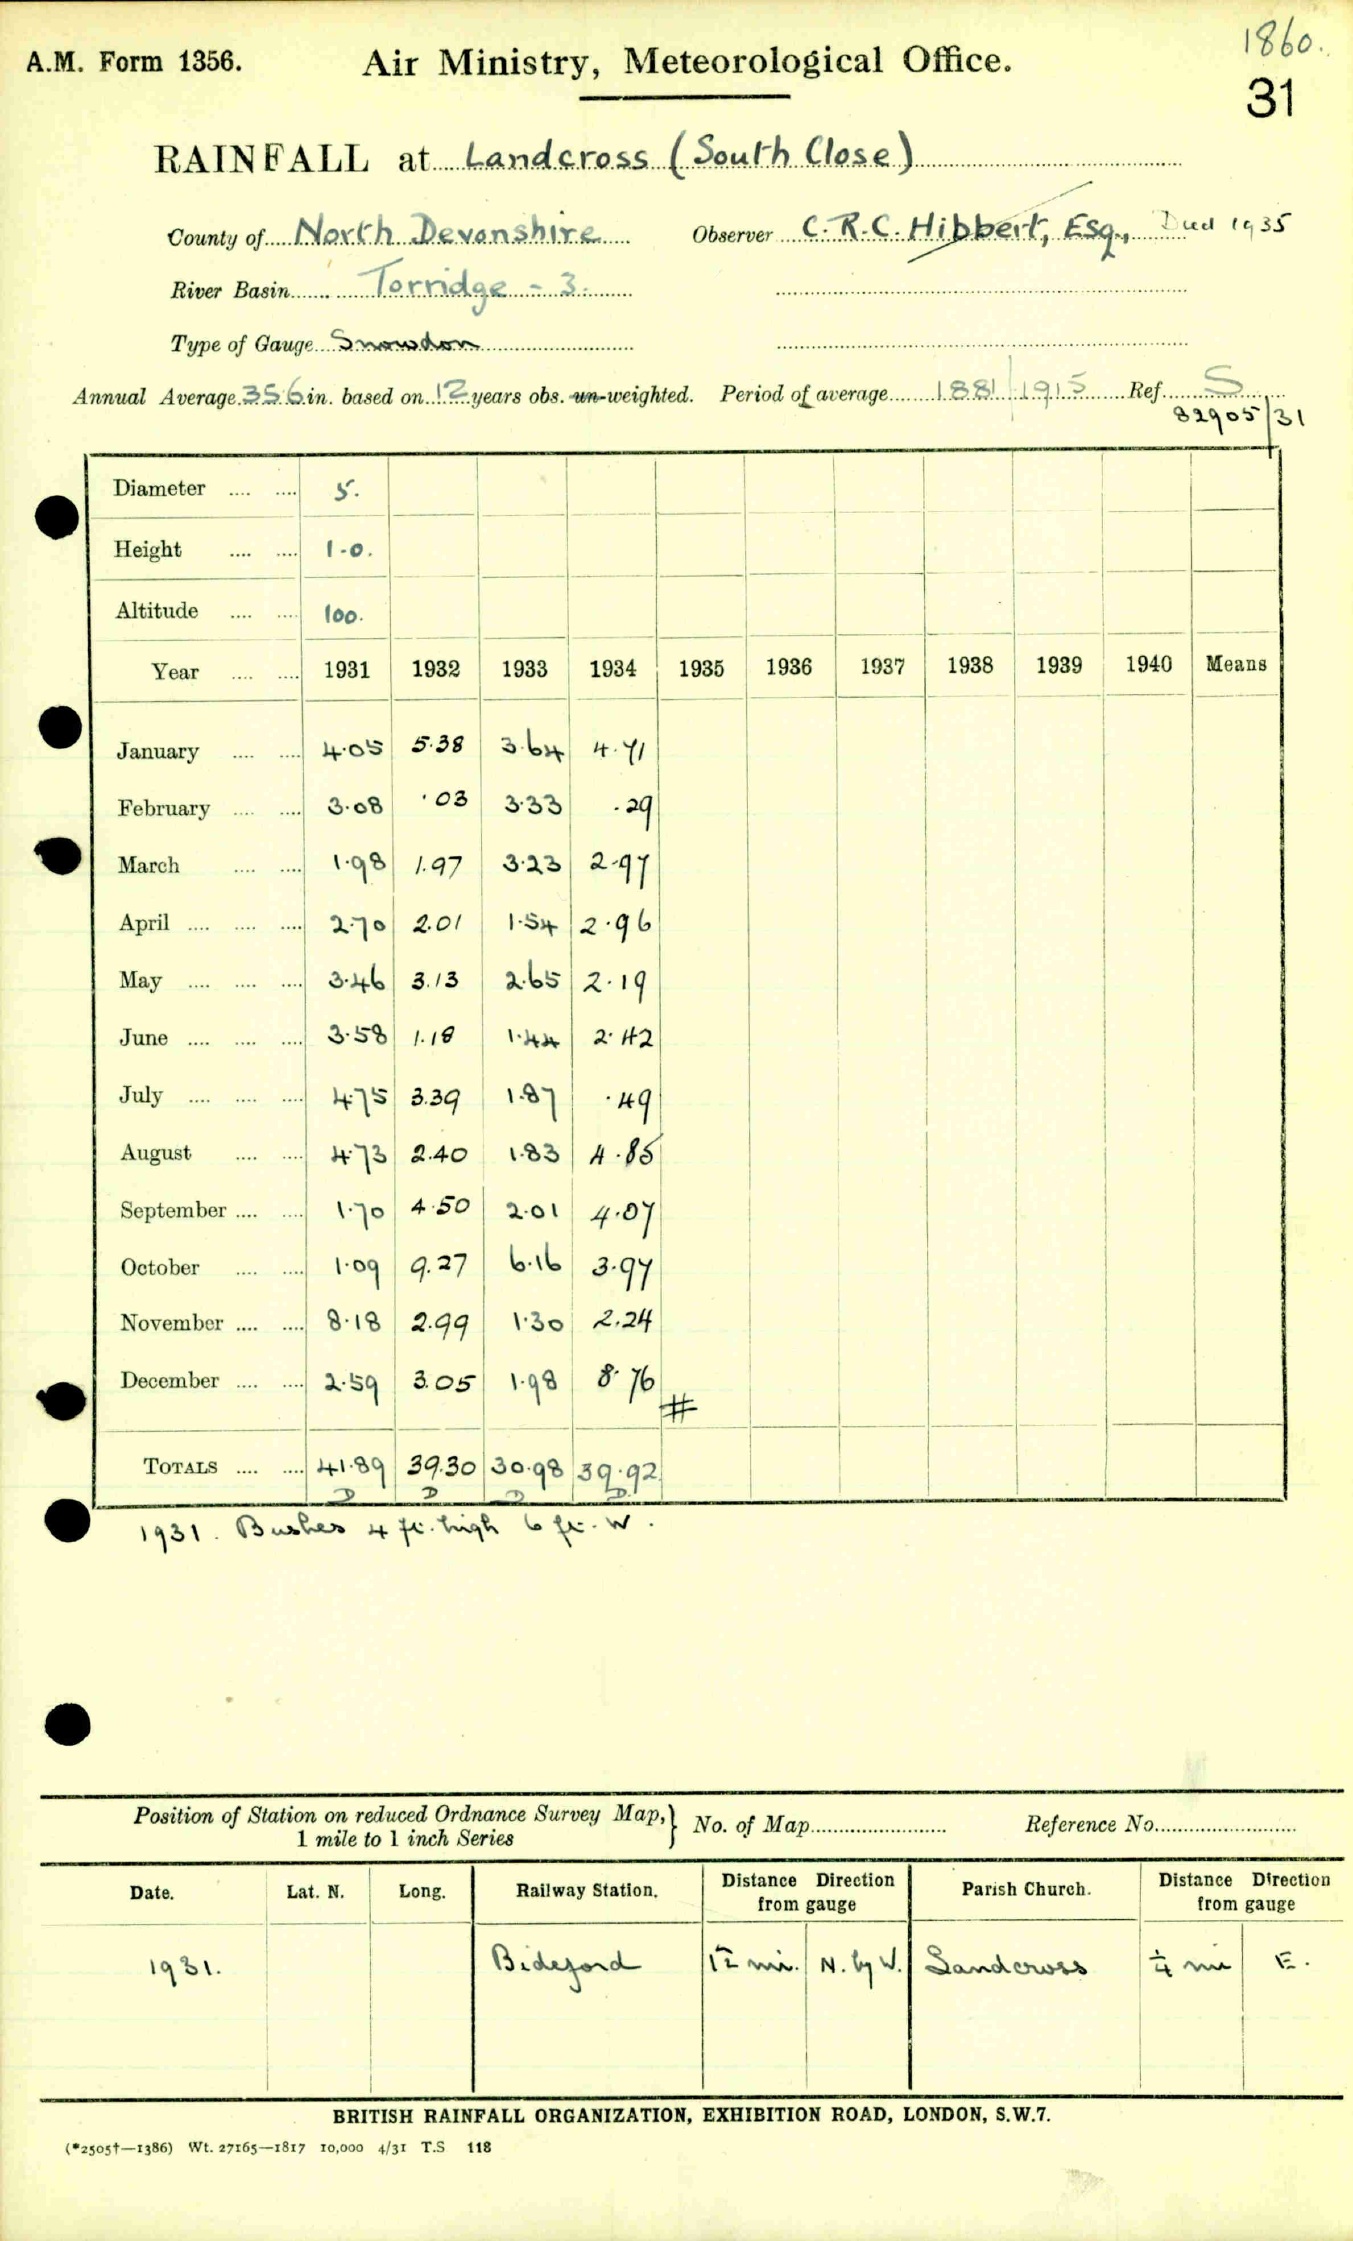 1860.
A.M. Form 1356. Air Ministry, Meteorological Office.
31
RAINFALL at Landcross (South Close)
County of North Devonshire Observer C. R. C. Hibbert, Esq., Died 1935
River Basin Torridge - 3.
Type of Gauge Snowdon
Annual Average 35.6 in. based on 12 years obs. un-weighted. Period of average 1881/1915 Ref. S
82905/31
Diameter .... .... 5.
Height .... .... 1-0.
Altitude .... .... 100.
Year .... .... 1931 1932 1933 1934 1935 1936 1937 1938 1939 1940 Means
January .... .... 4.05 5.38 3.64 4.71
February .... .... 3.08 .03 3.33 .29
March .... .... 1.98 1.97 3.23 2.97
April .... .... .... 2.70 2.01 1.54 2.96
May .... .... .... 3.46 3.13 2.65 2.19
June .... .... .... 3.58 1.18 1.44 2.42
July .... .... .... 4.75 3.39 1.87 .49
August .... .... 4.73 2.40 1.83 4.85
September .... .... 1.70 4.50 2.01 4.07
October .... .... 1.09 9.27 6.16 3.97
November .... .... 8.18 2.99 1.30 2.24
December .... .... 2.59 3.05 1.98 8.76
#
TOTALS .... .... 41.89 39.30 30.98 39.92
D D D D
1931. Bushes 4 ft. high 6 ft. W.
Position of Station on reduced Ordnance Survey Map,} No. of Map Reference No.
1 mile to 1 inch Series
Date. Lat. N. Long. Railway Station. Distance Direction from gauge Parish Church. Distance Direction from gauge
1931. Bideford 1½ mi. N. by W. Landcross ¼ mi E.
BRITISH RAINFALL ORGANIZATION, EXHIBITION ROAD, LONDON, S.W.7.
(*2505†—1386) Wt. 27165—1817 10,000 4/31 T.S 118